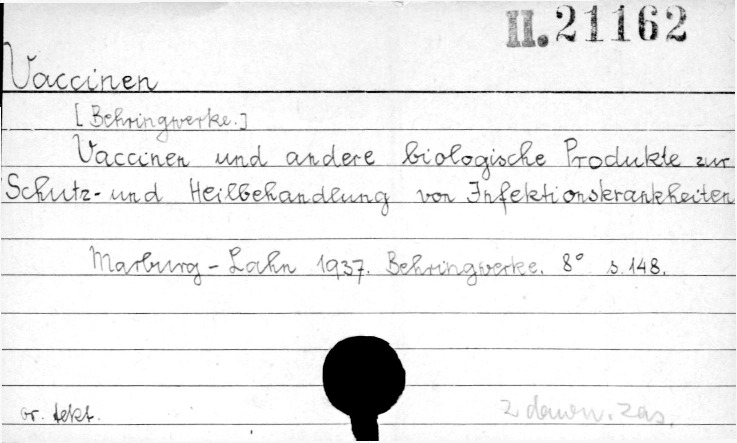 II. 21162
Vaccinen
[Behringwerke.]
Vaccinen und andere biologische Produkte zur
Schutz- und Heilbehandlung von Infektionskrankheiten
Marburg - Lahn 1937. Behringwerke. 8° s. 148.
br. tekt.
z dawn. zas.